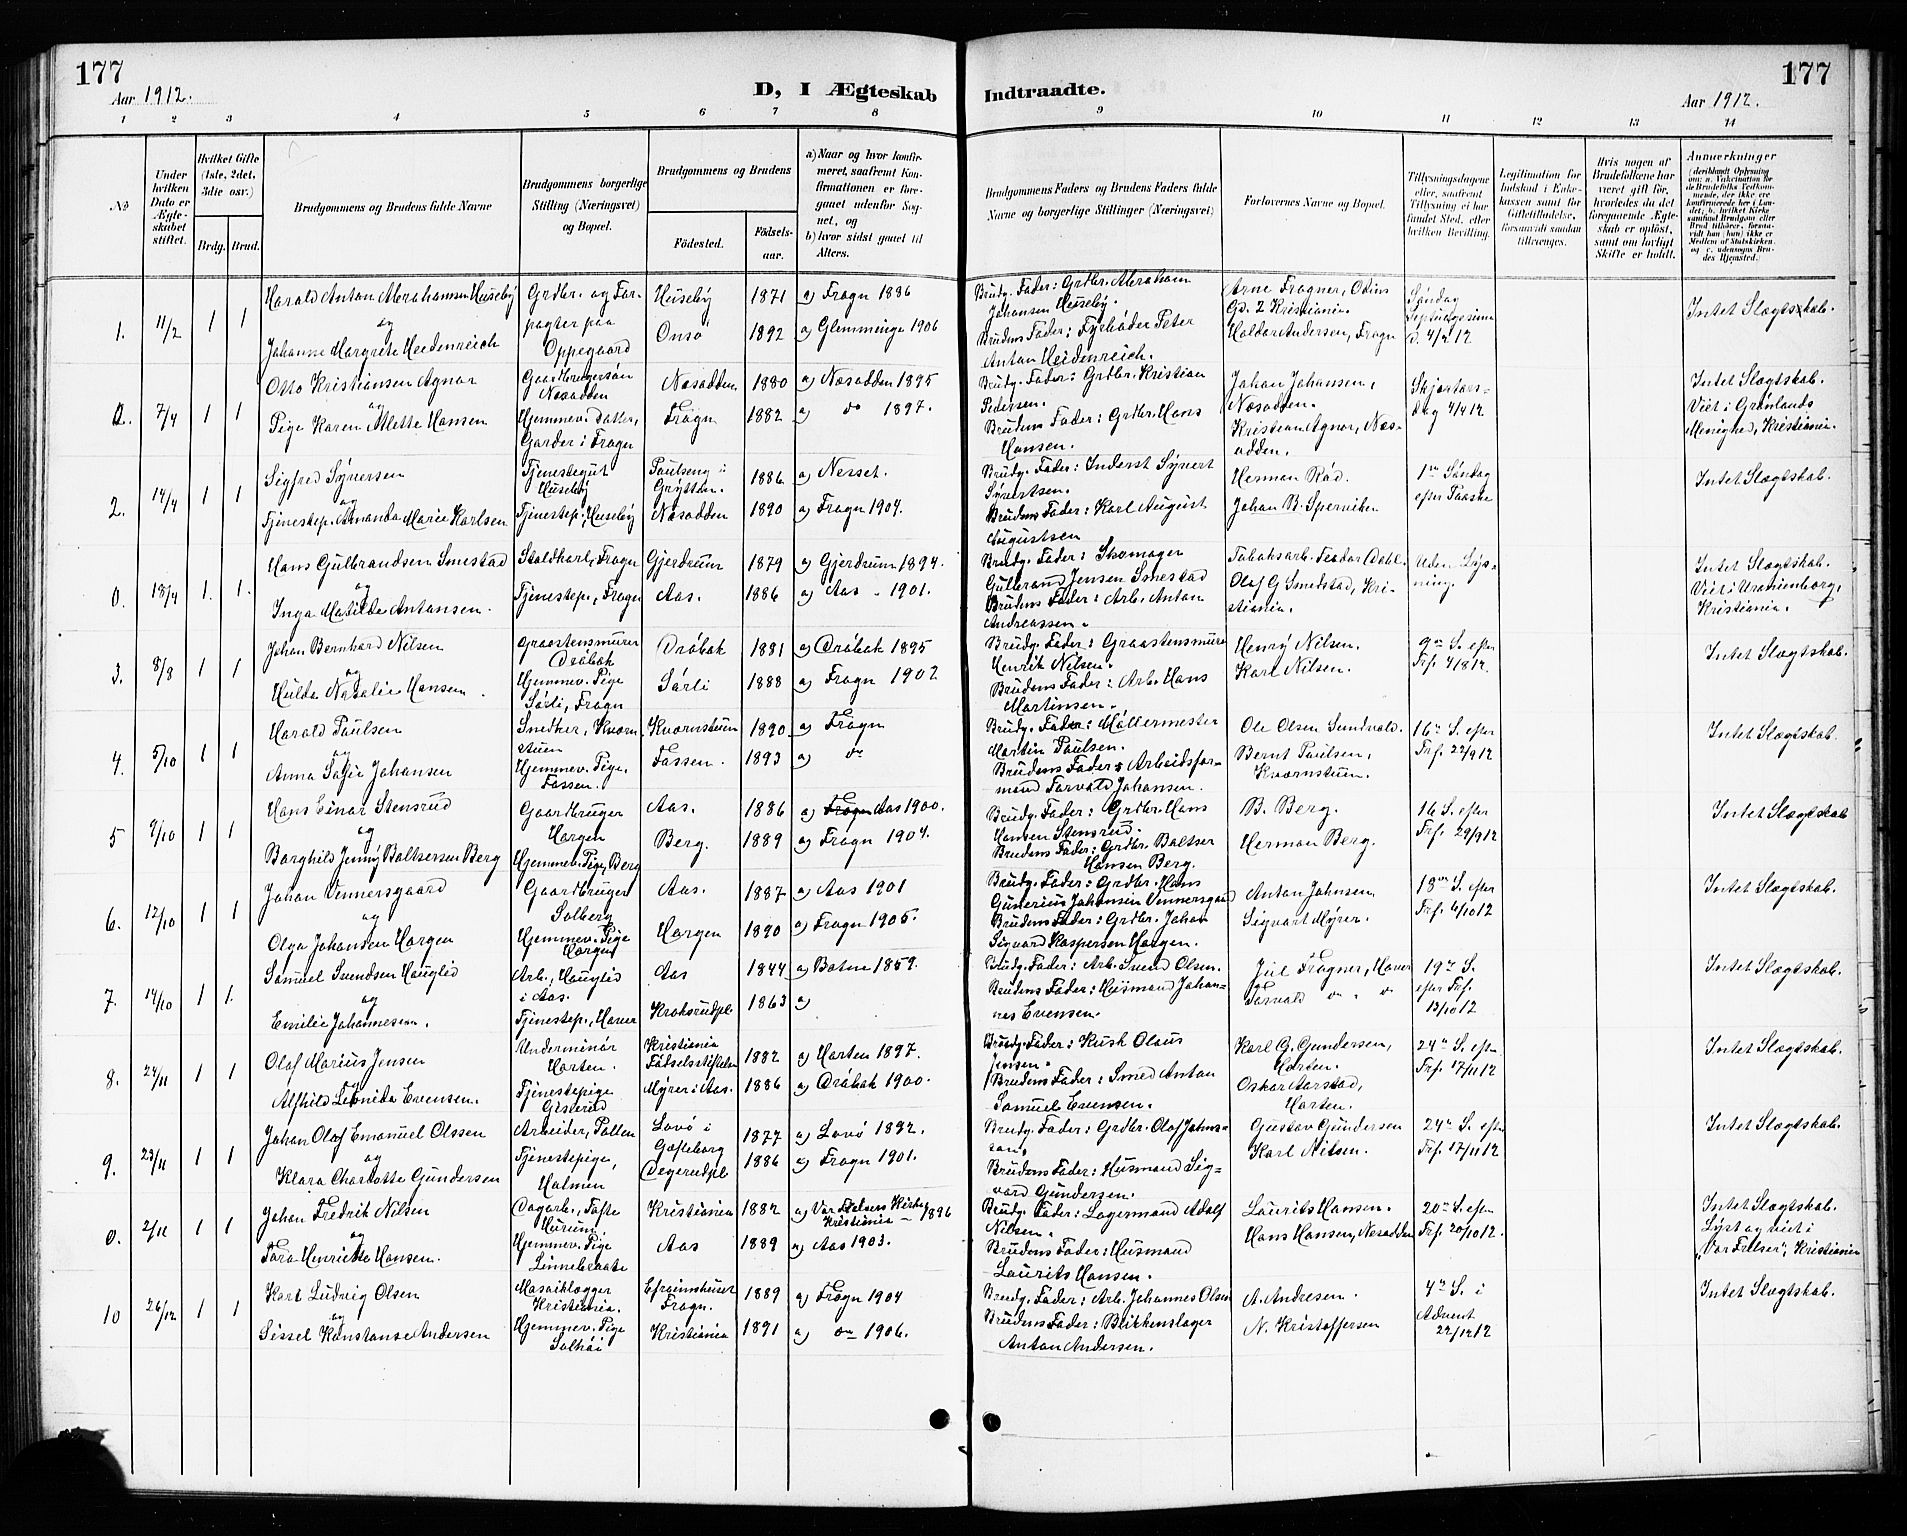 177
Aar 1912.
D, I Ægteskab
Indtraadte.
177
Aar 1912.
1 2 3 4 5 6 7 8 9 10 11 12 13 14
No
Under hvilken Dato er Ægteskabet stiftet.
Hvilket Gifte (1ste, 2det, 3die osv.)
Brdg. Brud.
Brudgommens og Brudens fulde Navne
Brudgommens borgerlige Stilling (Næringsvei) og Bopæl.
Brudgommens og Brudens
Födested.
Födselsaar.
a) Naar og hvor konfirmeret, saafremt Konfirmationen er foregaaet udenfor Sognet, og
b) hvor sidst gaaet til Alters.
Brudgommens Faders og Brudens Faders fulde Navne og borgerlige Stillinger (Næringsvei)
Forlovernes Navne og Bopæl.
Tillysningsdagene eller, saafremt Tillysning ei har fundet Sted, efter hvilken Bevilling.
Legitimation for Indskud i Enkekassen samt for Giftetilladelse, forsaavidt saadan tiltrænges.
Hvis nogen af Brudefolkene har været gift før, hvorledes da det foregaaende Ægteskab er opløst, samt om lovligt Skifte er holdt.
Anmerkninger
1. 11/2 1 1
Harald Anton Abrahamsen Huseby
og
Johanne Margrete Heidenreich
Grdbr. og Forpagter paa Oppegaard
Huseby 1871 a) Frogn 1886
Onsö 1892 a) Glemminge 1906
Brudg. Fader: Grdbr. Abraham Johansen Huseby.
Brudens Fader: Fyrbøder Peter Anton Heidenreich.
Arne Frogner, Odins Gd. 2 Kristiania.
Haldor Andersen, Frogn
Søndag Septuagesima d. 4/2 12
Intet Slægtskab.
0. 7/4 1 1
Otto Kristiansen Agnor
og
Pige Karen Alette Hansen
Gaardbrugersøn Nesodden
Hjemmev. Datter, Garder i Frogn
Nesodden 1880 a) Nesodden 1895
Frogn 1882 a) do 1897.
Brudg. Fader: Grdbr. Kristian Pedersen.
Brudens Fader: Grdbr. Hans Hansen.
Johan Johansen, Nesodden.
Kristian Agnor, Nesodden.
Skjærtorsdag 4/4 12
Intet Slægtskab.
Viet i Grønlands Menighed, Kristiania.
2. 14/4 1 1
Sigfred Syversen
og
Tjenestep. Amanda Marie Karlsen
Tjenestegut Huseby
Tjenestep., Huseby
Paulseng i Grytten. 1886 a) Nesset.
Nesodden 1890 a) Frogn 1904.
Brudg. Fader: Inderst Syvert Syvertsen.
Brudens Fader: Karl August Augustsen
Herman Röd.
Johan B. Spervik
1ste Søndag efter Paaske
Intet Slægtskab.
0. 18/4 1. 1.
Hans Gulbrandsen Smestad
og
Inga Matilde Antonsen.
Staldkarl, Frogn
Tjenestep., Frogn
Gjerdrum 1879 a) Gjerdrum 1894.
Aas. 1886 a) Aas 1901.
Brudg. Fader: Skomager Gulbrand Jensen Smestad
Brudens Fader: Arb. Anton Andreassen.
Olaf G Smedstad, Kristiania.
Uden Lysning.
Intet Slægtskab.
Viet i Uranienborg, Kristiania.
3. 8/8 1 1
Johan Bernhard Nilsen
og
Hulda Natalie Hansen.
Graastensmurer Dröbak
Hjemmev. Pige Sörli, Frogn
Dröbak 1881 a) Dröbak 1895
Sörli 1888 a) Frogn 1902
Brudg. Fader: Graastensmurer Henrik Nilsen.
Brudens Fader: Arb. Hans Martinsen.
Henry Nilsen.
Karl Nilsen.
9de S. efter Trf. 4/8 12.
Intet Slægtskab.
4. 5/10 1 1
Harald Paulsen
og
Anna Sofie Johansen
Snedker, Kvornstuen
Hjemmev. Pige, Fossen.
Kvornstuen 1890 a) Frogn
Fossen. 1893 a) do
Brudg. Fader: Möllermester Martin Paulsen.
Brudens Fader: Arbeidsformand Torvald Johansen.
Ole Olsen Sundvold.
Bernt Paulsen, Kvornstuen.
16de S. efter Trf. 22/9 12
Intet Slægtskab.
5 9/10 1 1
Hans Einar Stensrud
og
Borghild Jenny Baltsersen Berg
Gaardbruger Horgen
Hjemmev. Pige, Berg
Aas. 1886 a) Aas 1900.
Berg. 1889 a) Frogn 1904.
Brudg. Fader: Grdbr. Hans Hansen Stensrud.
Brudens Fader: Grdbr. Baltser Hansen Berg.
B. Berg.
Herman Berg.
16 S. efter Trf. 29/9 12
Intet Slægtskab
6. 12/10 1 1
Johan Vinnersgaard
og
Olga Johansen Horgen
Gaardbruger Solberg
Hjemmev. Pige Horgen
Aas. 1887 a) Aas 1901
Horgen 1890 a) Frogn 1905.
Brudg. Fader: Grdbr. Hans Gunerius Johansen Vinnersgaard
Brudens Fader: Grdbr. Johan Sigvard Kaspersen Horgen.
Anton Johnsen
Sigvart Myrer.
18de S. efter Trf. 6/10 12
Intet Slægtskab.
7. 14/10 1 1.
Samuel Svendsen Hauglid
og
Emilie Johannesen.
Arb., Hauglid i Aas.
Tjenestep., Horver
Aas 1844 a) Botne 1859.
Kroksrudpl 1863 a)
Brudg. Fader: Arb. Svend Olsen.
Brudens Fader: Husmand Johannes Evensen.
Jul Frogner, Horver
Torvald do " do
19de S. efter Trf. 13/10 12
Intet Slægtskab.
8. 24/11 1 1
Olaf Marius Jensen
og
Alfhild Leonida Evensen.
Underminör Horten.
Tjenestepige Gislerud
Kristiania Fødselsstiftelse 1882 a) Horten 1897.
Myrer i Aas. 1886 a) Dröbak 1900.
Brudg. Fader: Kusk Olaus Jensen.
Brudens Fader: Smed Anton Samuel Evensen.
Karl G. Gundersen, Horten.
Oskar Aarstad, Horten.
24de S. efter Trf. 17/11 12
Intet Slægtskab.
9. 23/11 1 1
Johan Olof Emanuel Olssen
og
Klara Charlotte Gundersen
Arbeider, Pollen
Tjenestepige, Holmen
Lovö i Gefleborg 1877 a) Lovö 1892.
Degerudpl 1886 a) Frogn 1901.
Brudg. Fader: Grdbr. Olof Johnsson.
Brudens Fader: Husmand Sigvard Gundersen.
Gustav Gundersen
Karl Nilsen.
24de S. efter Trf. 17/11 12
Intet Slægtskab.
0. 2/11 1 1
Johan Fredrik Nilsen
og
Tora Henriette Hansen.
Dagarb., Tofte Hurum
Hjemmev. Pige
Kristiania 1882 a) Vor Frelsers Kirke, Kristiania 1896
Aas 1889 a) Aas 1903.
Brudg. Fader: Lagermand Adolf Nilsen.
Brudens Fader: Husmand Laurits Hansen.
Laurits Hansen.
Hans Hansen, Nesodden
20de S. efter Trf. 20/10 12.
Intet Slægtskab.
Lyst og viet i "Vor Frelser", Kristiania
10 26/12 1 1
Karl Ludvig Olsen
og
Sissel Konstanse Andersen
Mosaiklægger Kristiania.
Hjemmev. Pige Solhöi
Efraimhuset Frogn. 1889 a) Frogn 1904
Kristiania 1891 a) do 1906.
Brudg. Fader: Arb. Johannes Olsen
Brudens Fader: Blikkenslager Anton Andersen.
A. Andresen.
N. Kristoffersen
4de S. i Advent 22/12 12
Intet Slægtskab.